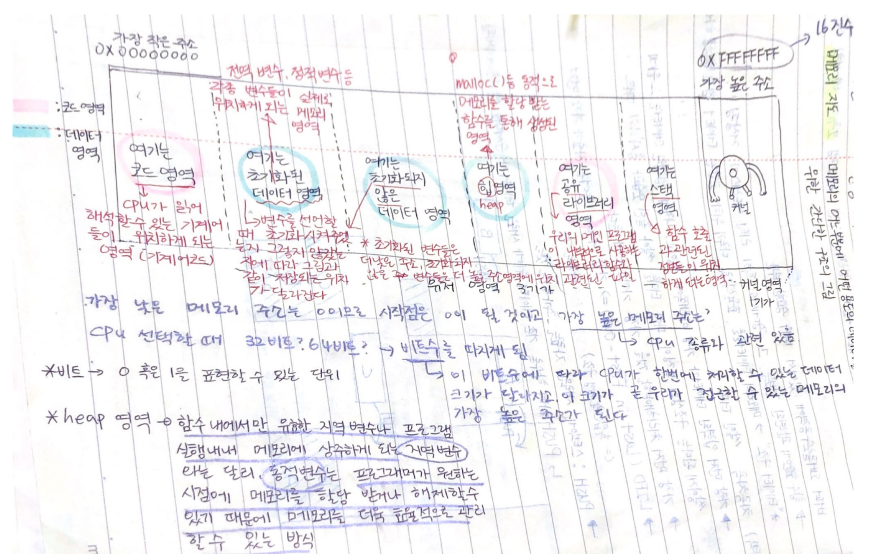 가장 작은 주소
0X00000000
16진수
0XFFFFFFFF
가장 높은 주소
메모리 지도
: 코드 영역
: 데이터
영역
전역 변수, 정적변수등
각종 변수들이 실제로
위치하게 되는 메모리
영역
malloc()등 동적으로
메모리를 할당 받는
함수를 통해 생성된
영역
여기는
코드 영역
CPU가 읽어
해석할 수 있는 기계어
들이 위치하게 되는
영역 (기계어코드)
여기는
초기화된
데이터 영역
변수를 선언할
때 초기화시켜주었
는지 그렇지 않았는
지에 따라 그림과
같이 저장되는 위치
가 달라진다
여기는
초기화되지
않은
데이터 영역
* 초기화된 변수들은
더 낮은 주소, 초기화되지
않은 변수들은 더 높은 주소영역에 위치
여기는
힙 영역
heap
여기는
공유
라이브러리
영역
우리의 메인 프로그램
이 내부적으로 사용하는
라이브러리 함수와
관련된
여기는
스택
영역
함수 호출
과 관련된
정보들이 위치
하게 되는 영역
커널
유저 영역 3기가
커널 영역
1기가
가장 낮은 메모리 주소는 0이므로 시작점은 0이 될 것이고, 가장 높은 메모리 주소는?
CPU 종류와 관련 있음
CPU 선택할 때 32비트? 64비트? → 비트수를 따지게 됨
이 비트수에 따라 CPU가 한번에 처리할 수 있는 데이터
크기가 달라지고, 이 크기가 곧 우리가 접근할 수 있는 메모리의
가장 높은 주소가 된다
*비트 → 0 혹은 1을 표현할 수 있는 단위
*heap 영역 → 함수 내에서만 유효한 지역 변수나 프로그램
실행내내 메모리에 상주하게 되는 지역변수
와는 달리, 동적변수는 프로그래머가 원하는
시점에 메모리를 할당 받거나 해제할수
있기 때문에 메모리를 더욱 효율적으로 관리
할 수 있는 방식